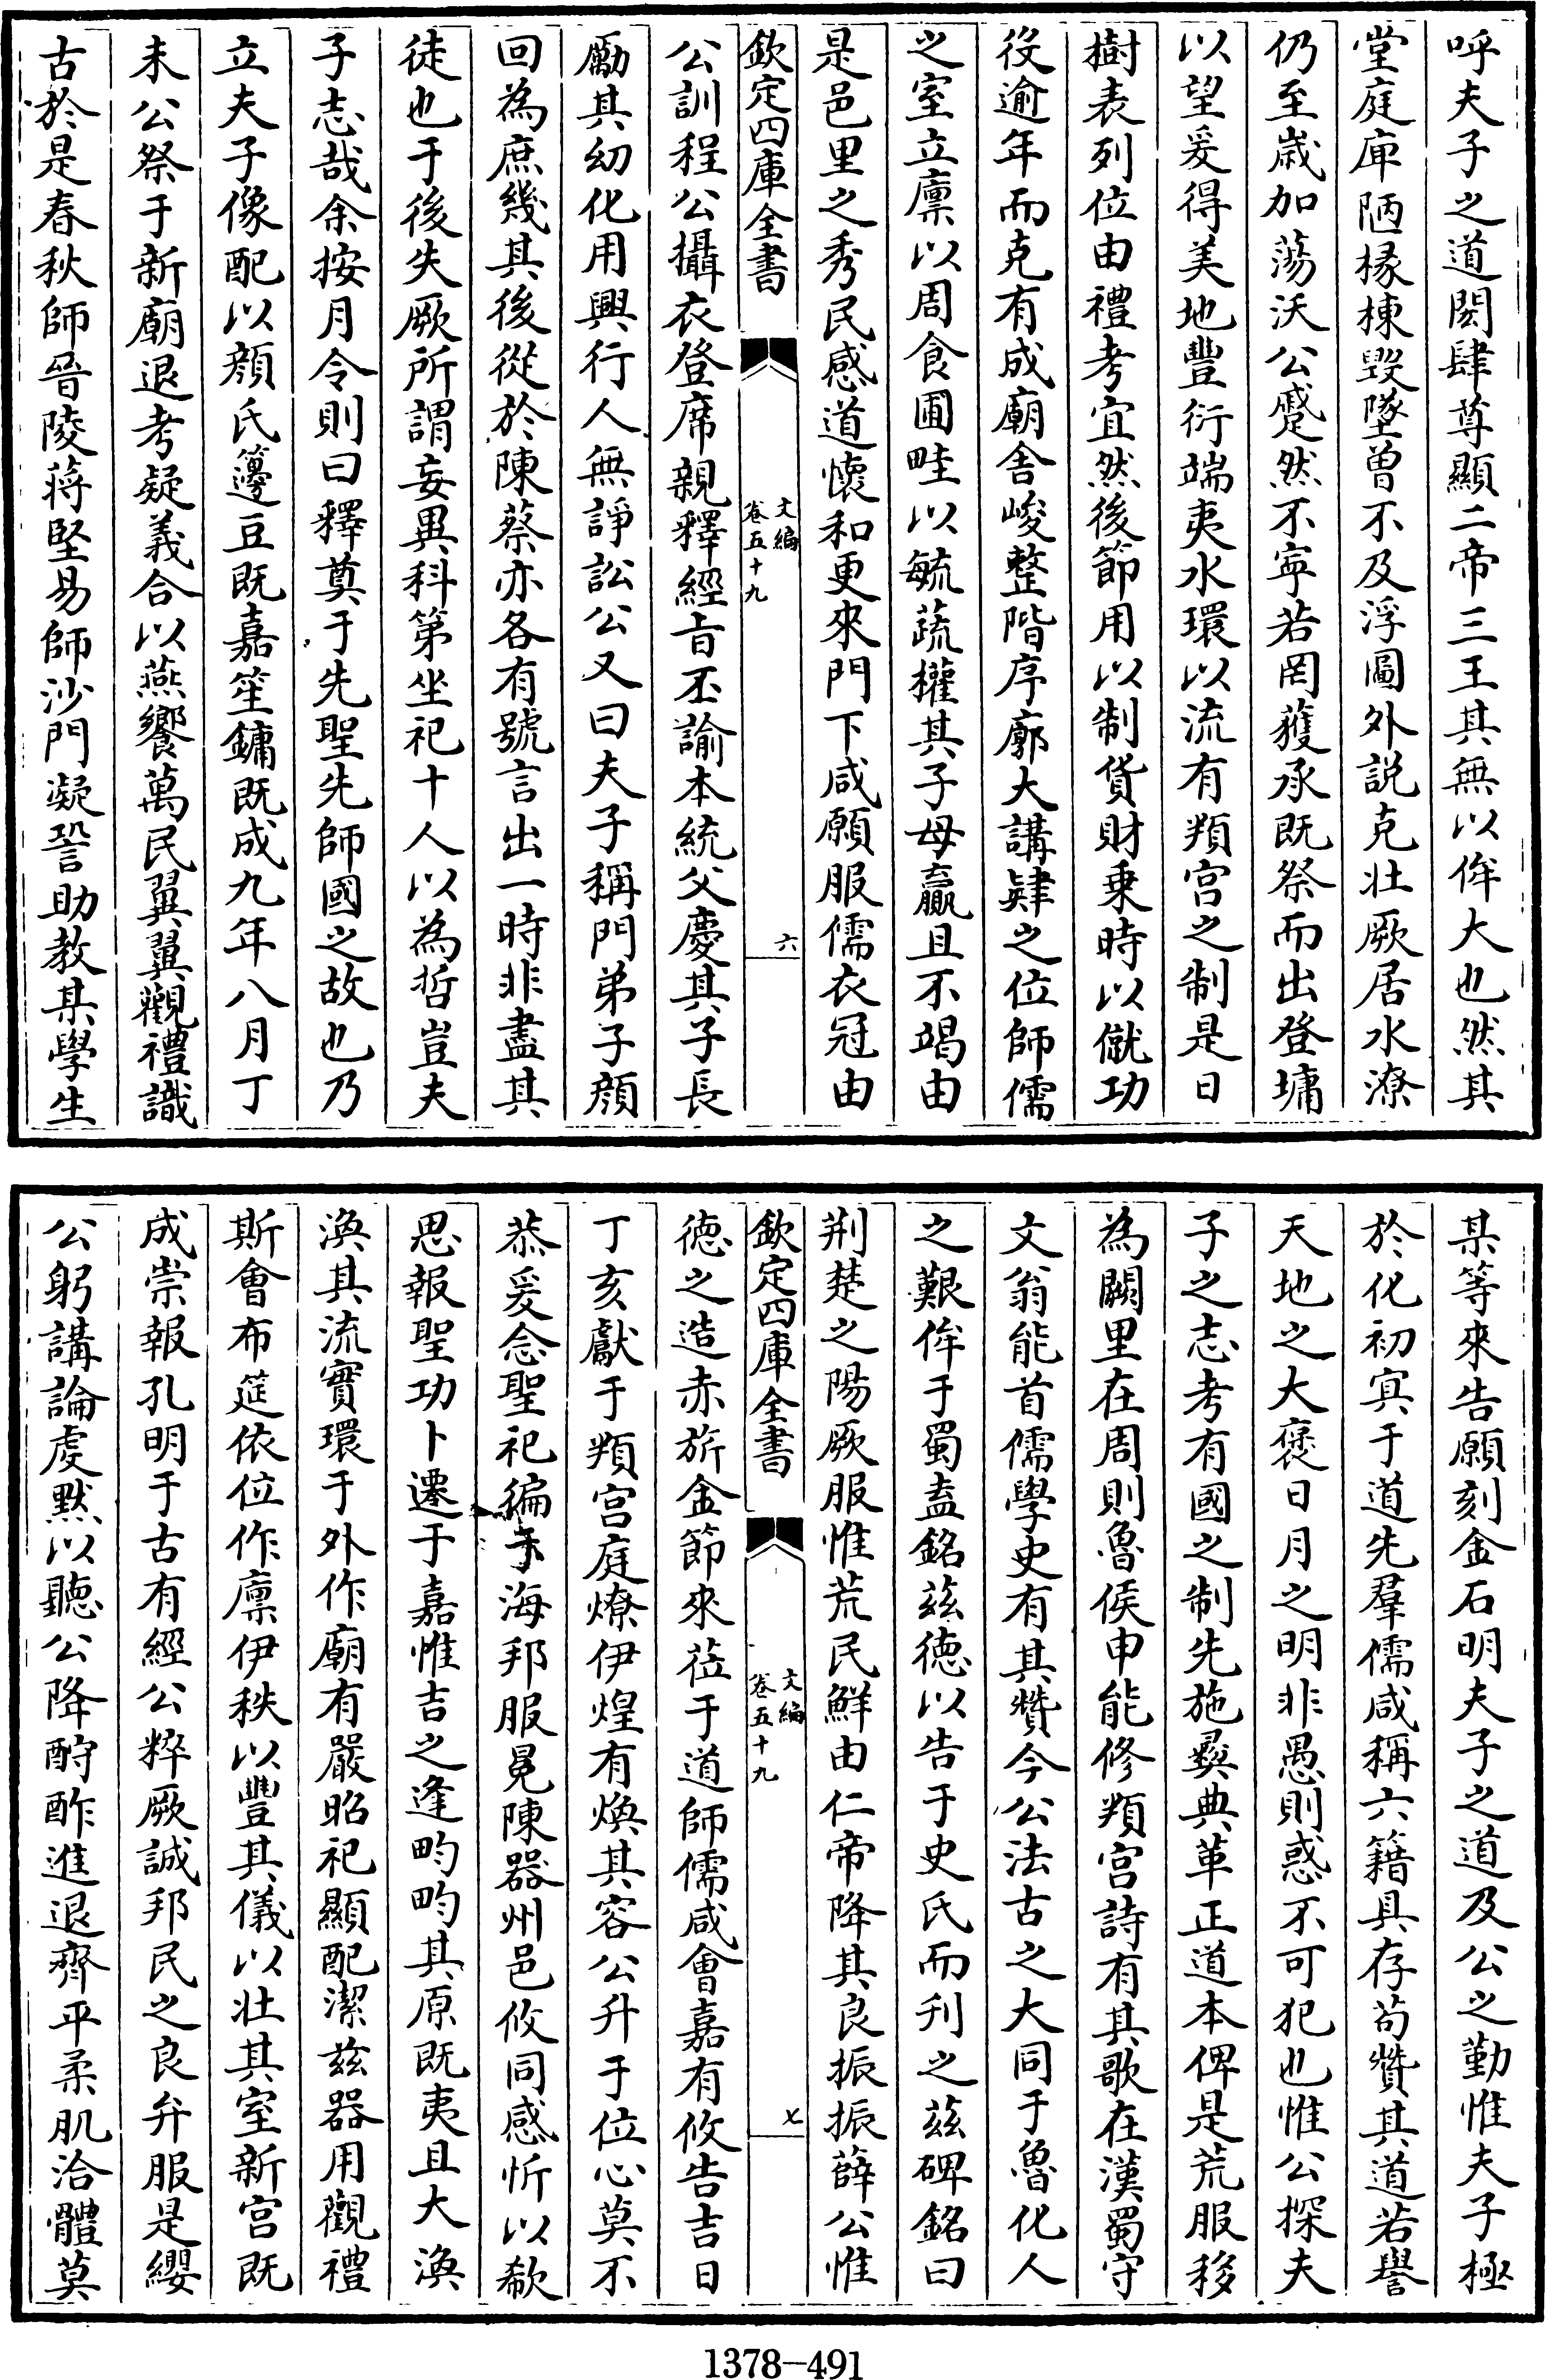 呼夫子之道閎肆尊顯二帝三王其無以侔大也然其
堂庭庫陋椽棟毀墜曽不及浮圖外説克壯厥居水潦
仍至歲加蕩沃公蹙然不寧若罔獲承既祭而出登墉
以望爰得美地豐衍端夷水環以流有頖宫之制是日
樹表列位由禮考宜然後節用以制貨財乗時以僦功
役逾年而克有成廟舎峻整階序廓大講肄之位師儒
之室立廩以周食圃畦以毓蔬權其子母贏且不竭由
是邑里之秀民感道懷和更來門下咸願服儒衣冠由
欽定四庫全書
文編
卷五十九
六
公訓程公攝衣登席親釋經旨丕諭本統父慶其子長
勵其幼化用興行人無諍訟公又曰夫子稱門弟子顔
回為庶幾其後從於陳蔡亦各有號言出一時非盡其
徒也于後失厥所謂妄異科第坐祀十人以為哲豈夫
子志哉余按月令則曰釋奠于先聖先師國之故也乃
立夫子像配以顔氏籩豆既嘉笙鏞既成九年八月丁
未公祭于新廟退考疑義合以燕饗萬民翼翼觀禮識
古於是春秋師晉陵蔣堅易師沙門凝䛒助教某學生
某等來告願刻金石明夫子之道及公之勤惟夫子極
於化初冥于道先羣儒咸稱六籍具存茍贊其道若譽
天地之大褒日月之明非愚則惑不可犯也惟公探夫
子之志考有國之制先施彛典革正道本俾是荒服移
為闕里在周則魯侯申能修頖宫詩有其歌在漢蜀守
文翁能首儒學史有其贊今公法古之大同于魯化人
之艱侔于蜀盍銘兹德以告于史氏而刋之兹碑銘曰
荆楚之陽厥服惟荒民鮮由仁帝降其良振振薛公惟
欽定四庫全書
文編
卷五十九
七
德之造赤旂金節來莅于道師儒咸會嘉有攸告吉日
丁亥獻于頖宫庭燎伊煌有煥其容公升于位心莫不
恭爰念聖祀徧于海邦服冕陳器州邑攸同感忻以欷
思報聖功卜遷于嘉惟吉之逢畇畇其原既夷且大渙
渙其流實環于外作廟有嚴昭祀顯配潔兹器用觀禮
斯會布筵依位作廩伊秩以豐其儀以壯其室新宫既
成崇報孔明于古有經公粹厥誠邦民之良弁服是纓
公躬講論虔黙以聽公降酧酢進退齊平柔肌洽體莫
1378-491